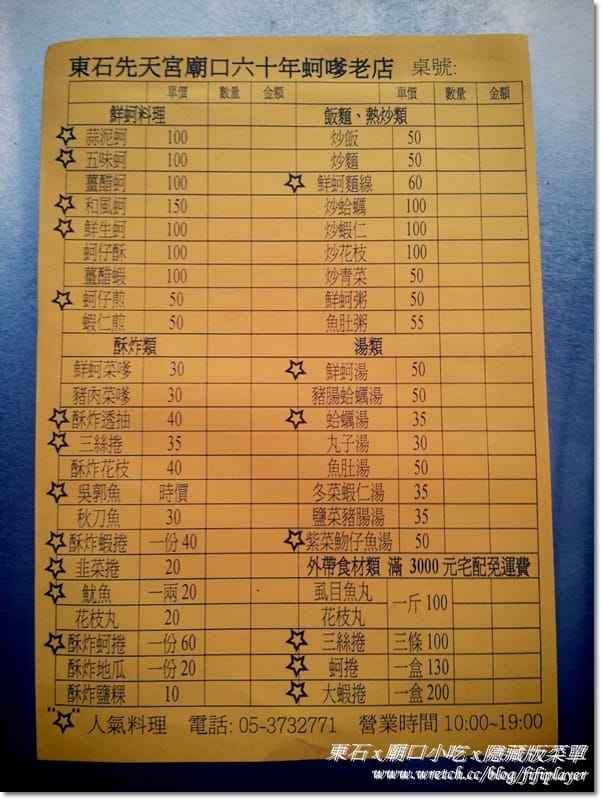 東石先天宮廟口六十年蚵嗲老店 桌號:
單價 數量 金額 單價 數量 金額
鮮蚵料理 飯麵、熱炒類
☆蒜泥蚵 100 炒飯 50
☆五味蚵 100 炒麵 50
薑醋蚵 100 ☆鮮蚵麵線 60
☆和風蚵 150 炒蛤蠣 100
☆鮮生蚵 100 炒蝦仁 100
蚵仔酥 100 炒花枝 100
薑醋蝦 100 炒青菜 50
☆蚵仔煎 50 鮮蚵粥 50
蝦仁煎 50 魚肚粥 55
酥炸類 湯類
鮮蚵菜嗲 30 ☆鮮蚵湯 50
豬肉菜嗲 30 豬腸蛤蠣湯 50
☆酥炸透抽 40 ☆蛤蠣湯 35
☆三絲捲 35 丸子湯 30
酥炸花枝 40 魚肚湯 50
☆吳郭魚 時價 冬菜蝦仁湯 35
秋刀魚 30 鹽菜豬腸湯 35
☆酥炸蝦捲 一份 40 ☆紫菜魩仔魚湯 50
☆韭菜捲 20 外帶食材類 滿 3000 元宅配免運費
☆魷魚 一兩 20 虱目魚丸 一斤 100
花枝丸 20 花枝丸
☆酥炸蚵捲 一份 60 ☆三絲捲 三條 100
酥炸地瓜 一份 20 ☆蚵捲 一盒 130
酥炸鹽粿 10 ☆大蝦捲 一盒 200
"☆"人氣料理 電話: 05-3732771 營業時間 10:00~19:00
東石 x 廟口小吃 x 隱藏版菜單
www.wretch.cc/blog/fifiplayer